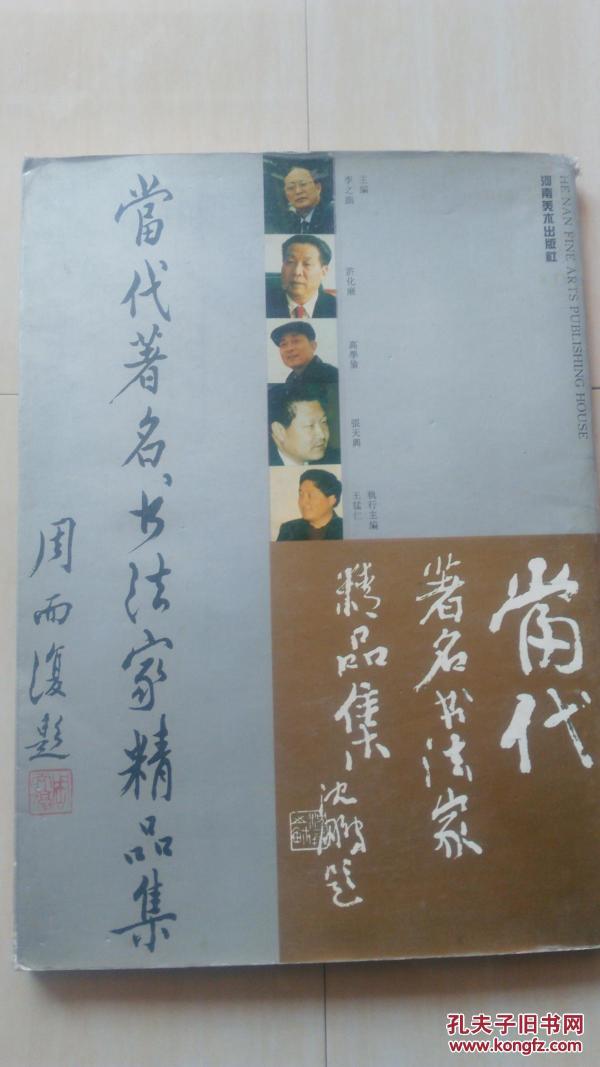 當代著名书法家精品集
周而復題
主編
李之
許化
高學
張天興
執行主編
王猛仁
河南美术出版社
HE NAN FINE ARTS PUBLISHING HOUSE
當代
著名书法家
精品集
沈鹏题
孔夫子旧书网
www.kongfz.com